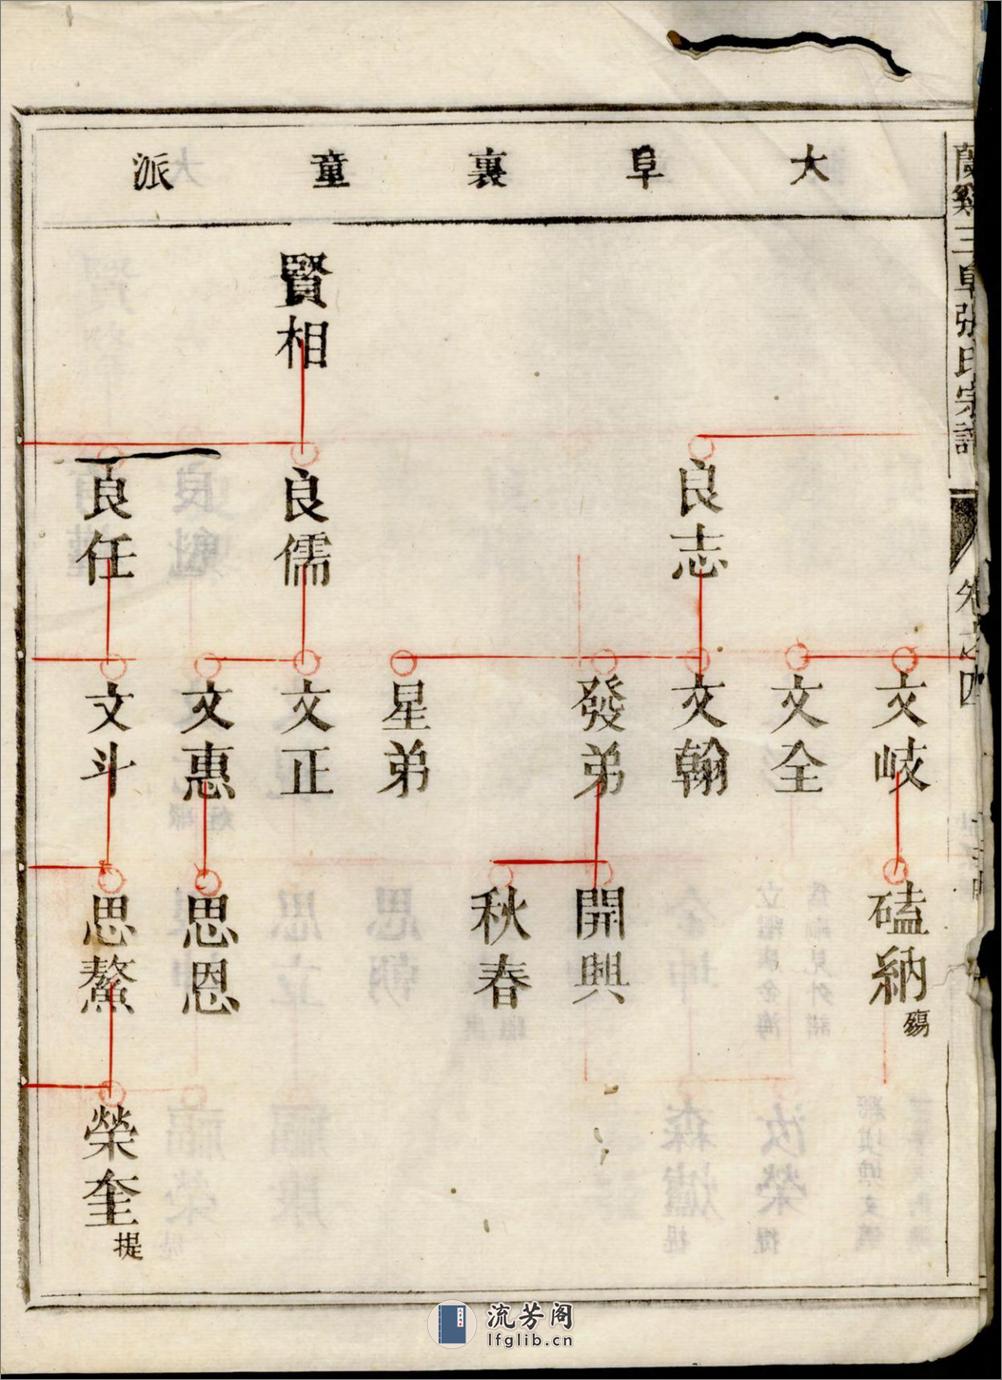 大阜裏童派
蘭谿三阜張氏宗譜
卷之四
賢相
良志
良儒
良任
文岐
文全
文翰
發弟
星弟
文正
文惠
文斗
磕納殤
開興
秋春
思恩
思鰲
榮奎提
流芳阁
lfglib.cn